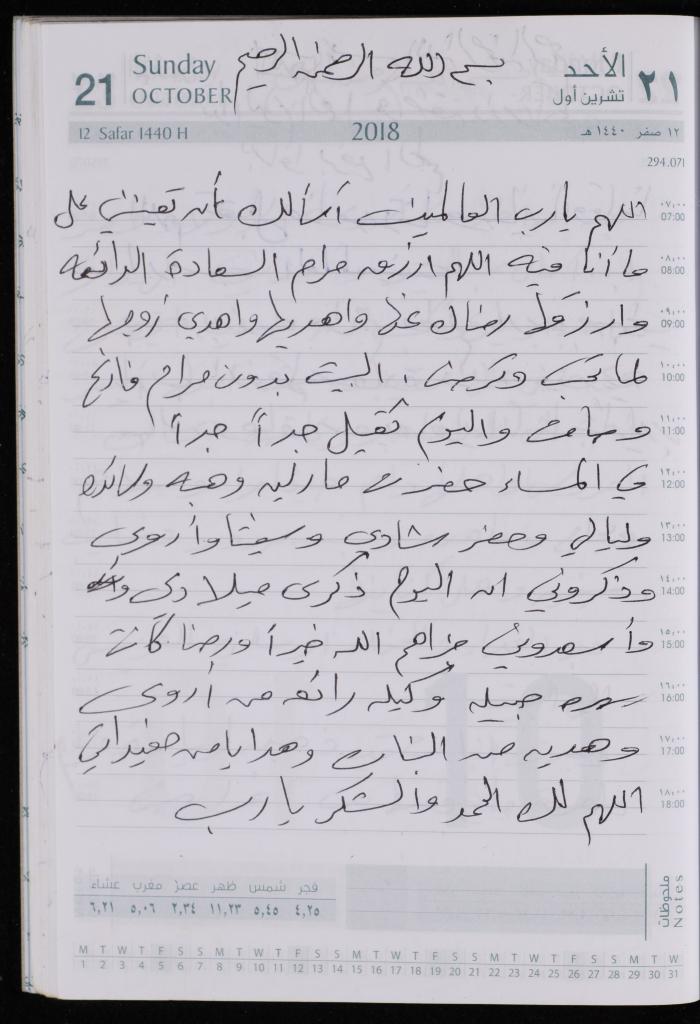 21 Sunday OCTOBER بسم الله الرحمن الرحيم الأحد تشرين أول ٢١
12 Safar 1440 H 2018 ١٢ صفر ١٤٤٠ هـ
294.071
اللهم يارب العالمين أسألك أن تعينني على ٠٧,٠٠ 07:00
ما أنا فيه اللهم ارزق مرام السعادة الدائمه ٠٨,٠٠ 08:00
وارزقها رضاك عنها واهديها واهدي زوجها ٠٩,٠٠ 09:00
لما تحب وترضى . البيت بدون مرام فارغ ١٠,٠٠ 10:00
وصامت واليوم ثقيل جداً جداً ١١,٠٠ 11:00
في المساء حضرت مارلين وهبه ١٢,٠٠ 12:00
وليالي وحضر شادي وأروى ١٣,٠٠ 13:00
وذكروني ان اليوم ذكرى ميلادي ١٤,٠٠ 14:00
وأسعدوني جزاهم الله خيراً ورضا كانت ١٥,٠٠ 15:00
سهره جميله وكيكه رائعه من أروى ١٦,٠٠ 16:00
وهديه من البنات وهدايا من حفيداتي ١٧,٠٠ 17:00
اللهم لك الحمد والشكر يارب ١٨,٠٠ 18:00
فجر شمس ظهر عصر مغرب عشاء
٤,٢٥ ٥,٤٥ ١١,٢٣ ٢,٣٤ ٥,٠٦ ٦,٢١
ملحوظات
Notes
M T W T F S S M T W T F S S M T W T F S S M T W T F S S M T W
1 2 3 4 5 6 7 8 9 10 11 12 13 14 15 16 17 18 19 20 21 22 23 24 25 26 27 28 29 30 31